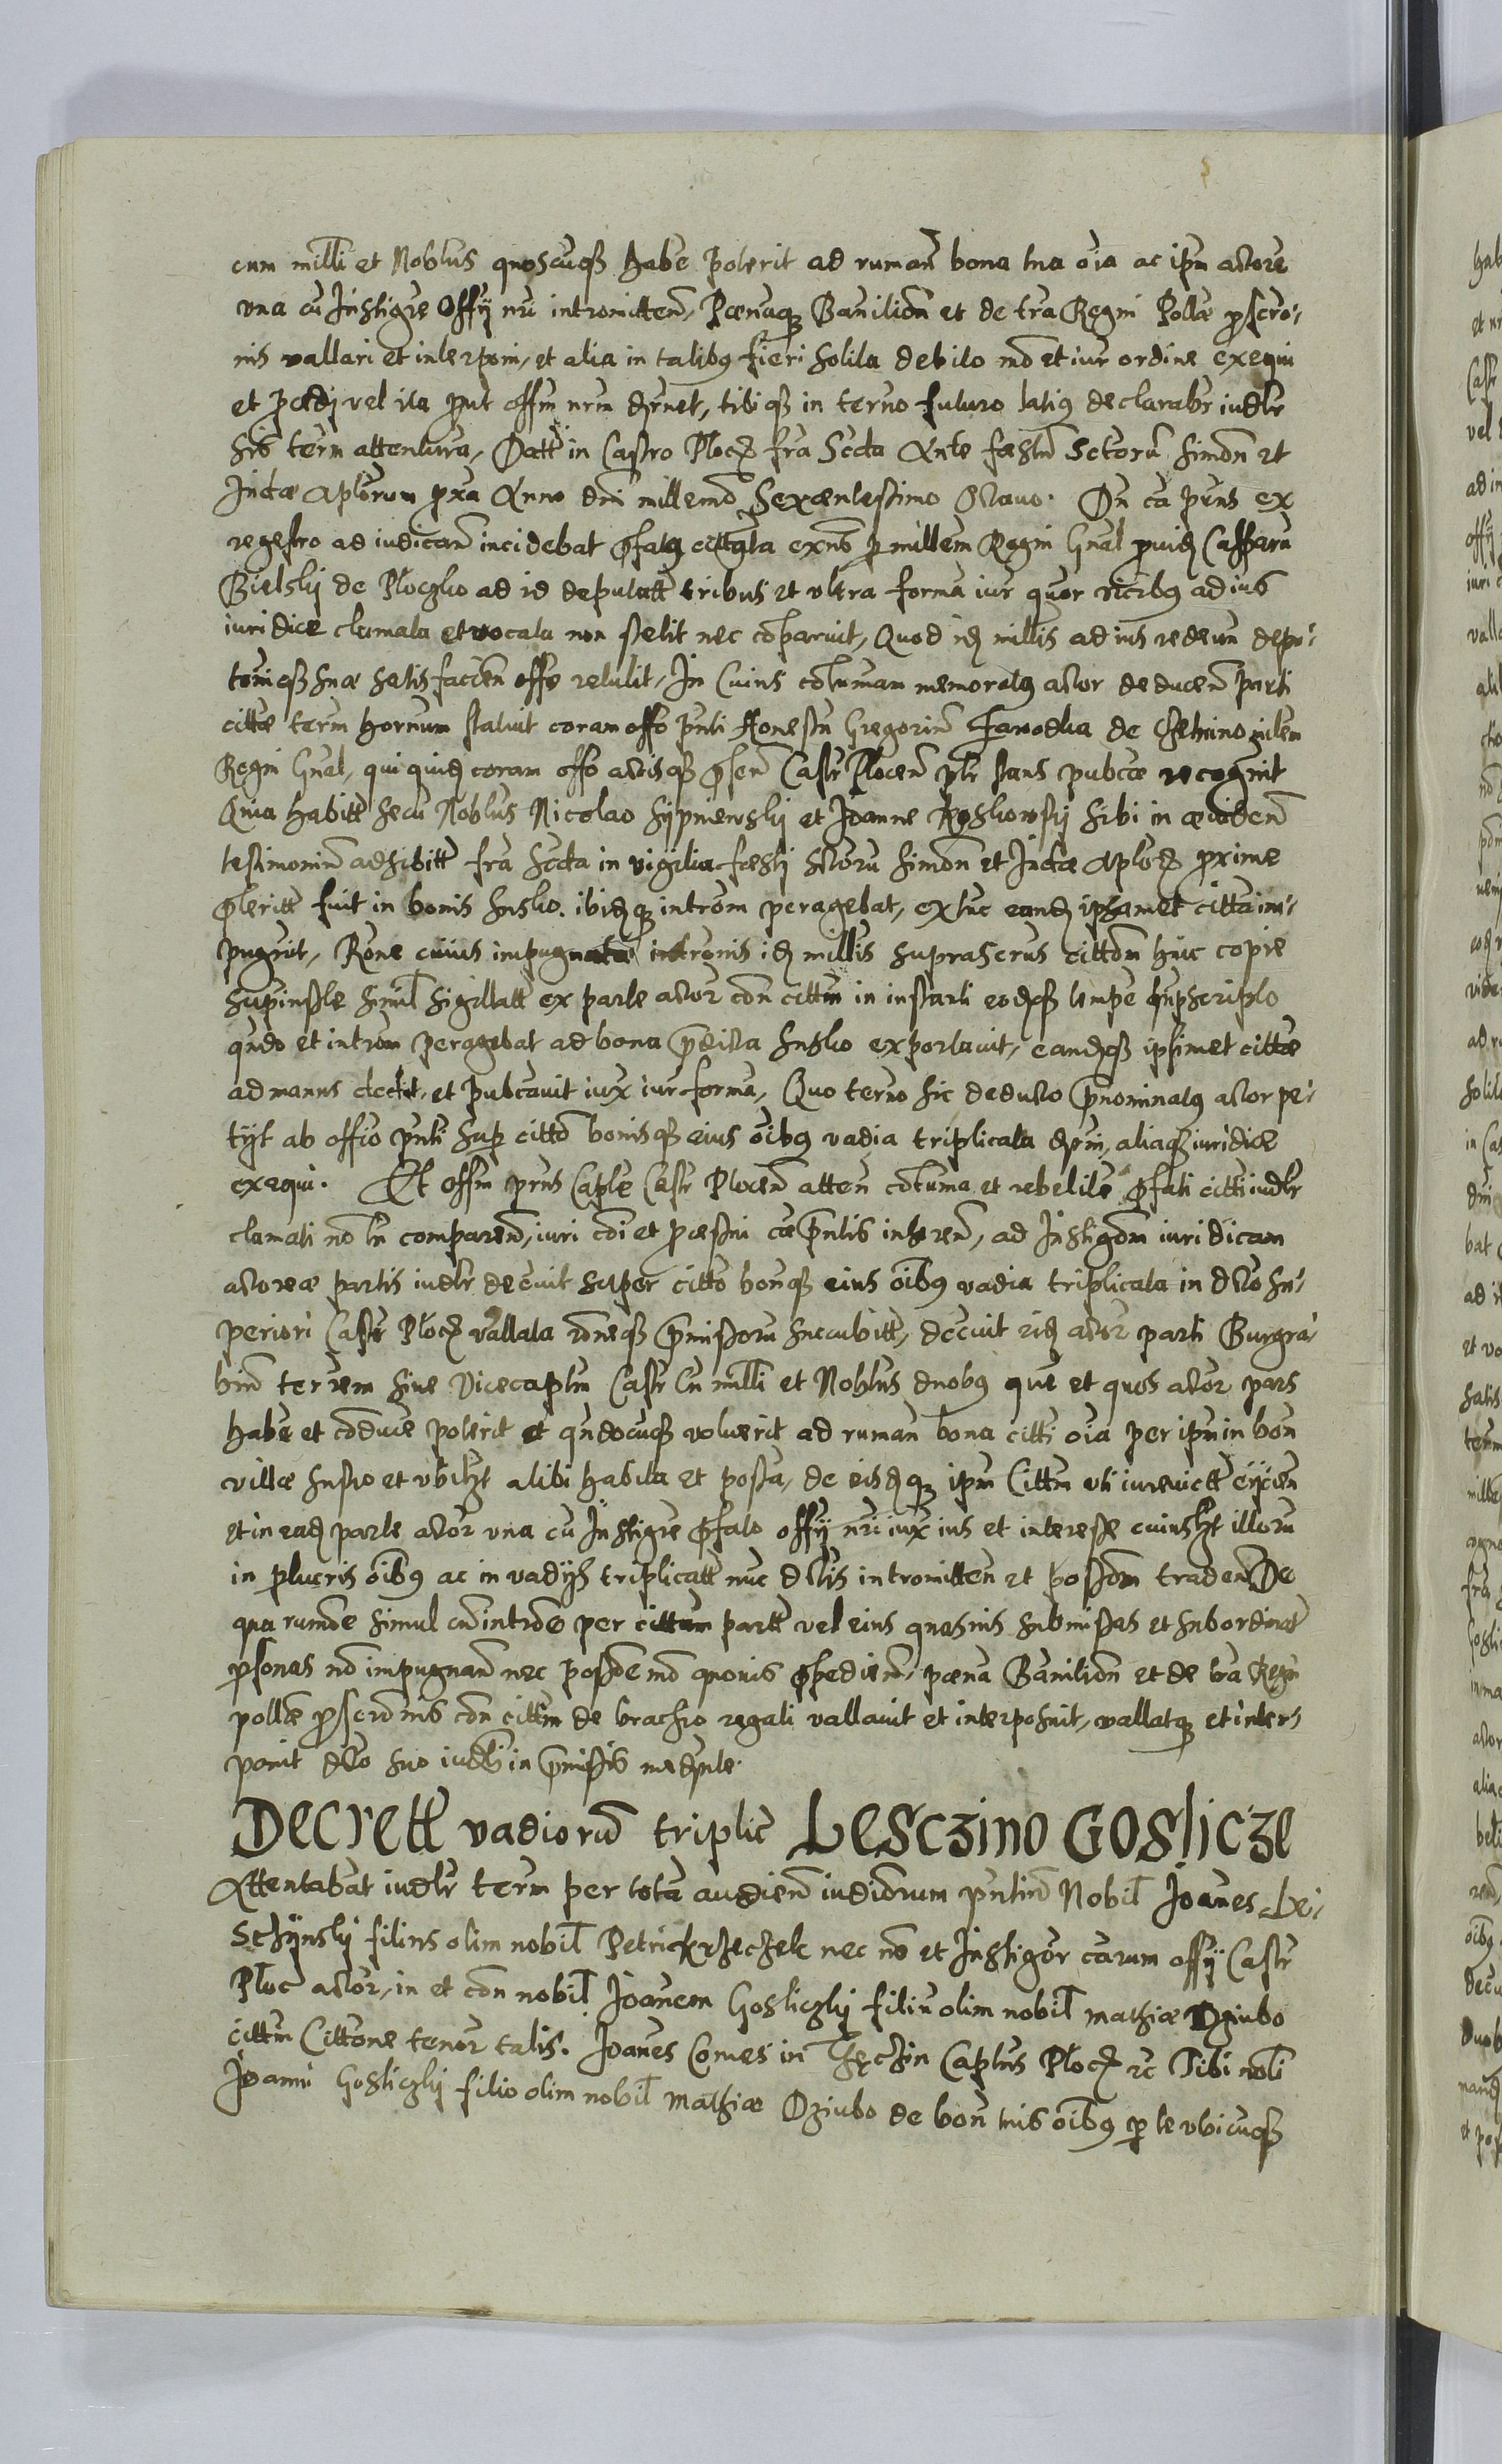 cum milli et Noblus quoscuqʒ habe poterit ad ruman bona tua oia ac ipm actore
una cu Instigre Offij nri intromitten, Pœnaqʒ Banition et de tra Regni Pollæ pscro-
nis vallari et interponi, et alia in talibʒ fieri solita debito mo et iur ordine exequi
et pcedi vel ita put offm nrm dernet, tibiqʒ in terno futuro latiʒ declarabr iudlr
hrs term attentura, Datt in Castro Plocʒ fra Scda Ante fæstu Sctoru Simon et
Judæ Aplorum pxa Anno dni millemo Sexcentessimo Octauo. Dn ca pnns ex
regestro ad iudican incidebat pfatʒ cittata exns p millem Regni Gnal puid Casparu
Bielsky de Ploczko ad id deputatt tribus et vltra forma iur quor vicibʒ ad ius
iuridice clamata et vocata non stetit nec coparuit, Quod id millis ad ius redeun depu-
toniqʒ suæ satisfacien offo retulit, In Cuius cotumam memoratʒ actor deducen parti
cittæ term hornum statuit coram offo pnti Honestu Gregoriu de milem
Regni Gnal, qui quid coram offo actisqʒ psen Castr Plocen plr stans pubcæ recognit
Quia habitt secu Noblus Nicolao Sypniewsky et Joanne sibi in æuiden
testimoniu adhibitt fra Scda in vigilia fæsti sctoru Simon et Judæ Aplorʒ proxime
pteritt fuit in bonis Susko. ibidqʒ introm peragebat, extuc eand ipsamet citta im-
pugnit, Rone cuius impugnatæ intronis id millis suprascrus citton huic copie
supinsste simul sigillatt ex parte actor con cittm in instanti eodqʒ tempe supscripto
qndo et introm peragebat ad bona pdicta Susko exportavit, eandqʒ ipsimet cittæ
ad manus dedit, et pubcavit iux iur forma, Quo terno sic deducto pnominatʒ actor pe-
tijt ab offio pnti sup citto bonisqʒ eius oibʒ vadia triplicata derni, aliaqʒ iuridice
exequi. Et offm pnns Caple Castr Plocen atten cotuma et rebelite pfati citti iudlr
clamati no tn comparen, iuri coi et pcæssui cæ pntis inheren, ad Instigom iuridicam
actoreæ partis iudlr decuit super citto bonqʒ eius oibʒ vadia triplicata in dcto su-
periori Castr Plocʒ vallata roneqʒ pmissoru succubitt, decuit eid actor parti Burgra-
biu terrem siue Vicecaptm Castr cu milli et Noblus duobʒ que et quos actor pars
habe et conduce poterit et qndocuqʒ voluerit ad ruman bona citti oia per ipm in bon
villæ Susko et vbilʒt alibi habita et possa, de eisdqʒ ipm Cittm vti iurevictt eijcien
et in ead parte actor vna cu Instigre pfato offij nri iux ius et interesse cuiuslʒt illoru
in plucris oibʒ ac in vadijs triplicatt nuc dctis intromitten et possom traden De
qua rumone simul cu introne per cittum partt vel eius quasuis submissas et subordinat
psonas no impugnan nec possone mo quouis ppedien, pœna Banition et de tra Regn
pollæ pscronis con cittm de brachio regali vallauit et interposuit, vallatqʒ et inter-
ponit dcto suo iudli in pmissis mednte.
Decrett vadioru triplic Lesczino Goslicze
Attentabat iudlr term per tota audien iudiorum pntium Nobil Joanes Le-
sczijnsky filius olim nobil Petri krzeczek nec no et Instigor carum offij Castr
Ploc actor, in et con nobil Joanem Gosliczky filiu olim nobil Mathiæ Dziubo
cittm Cittone tenor talis. Joanes Comes in Thęczin Captus Plocʒ etc Tibi nobli
Joanni Gosliczky filio olim nobil Mathiæ Dziubo de bon tuis oibʒ p te vbicuqʒ